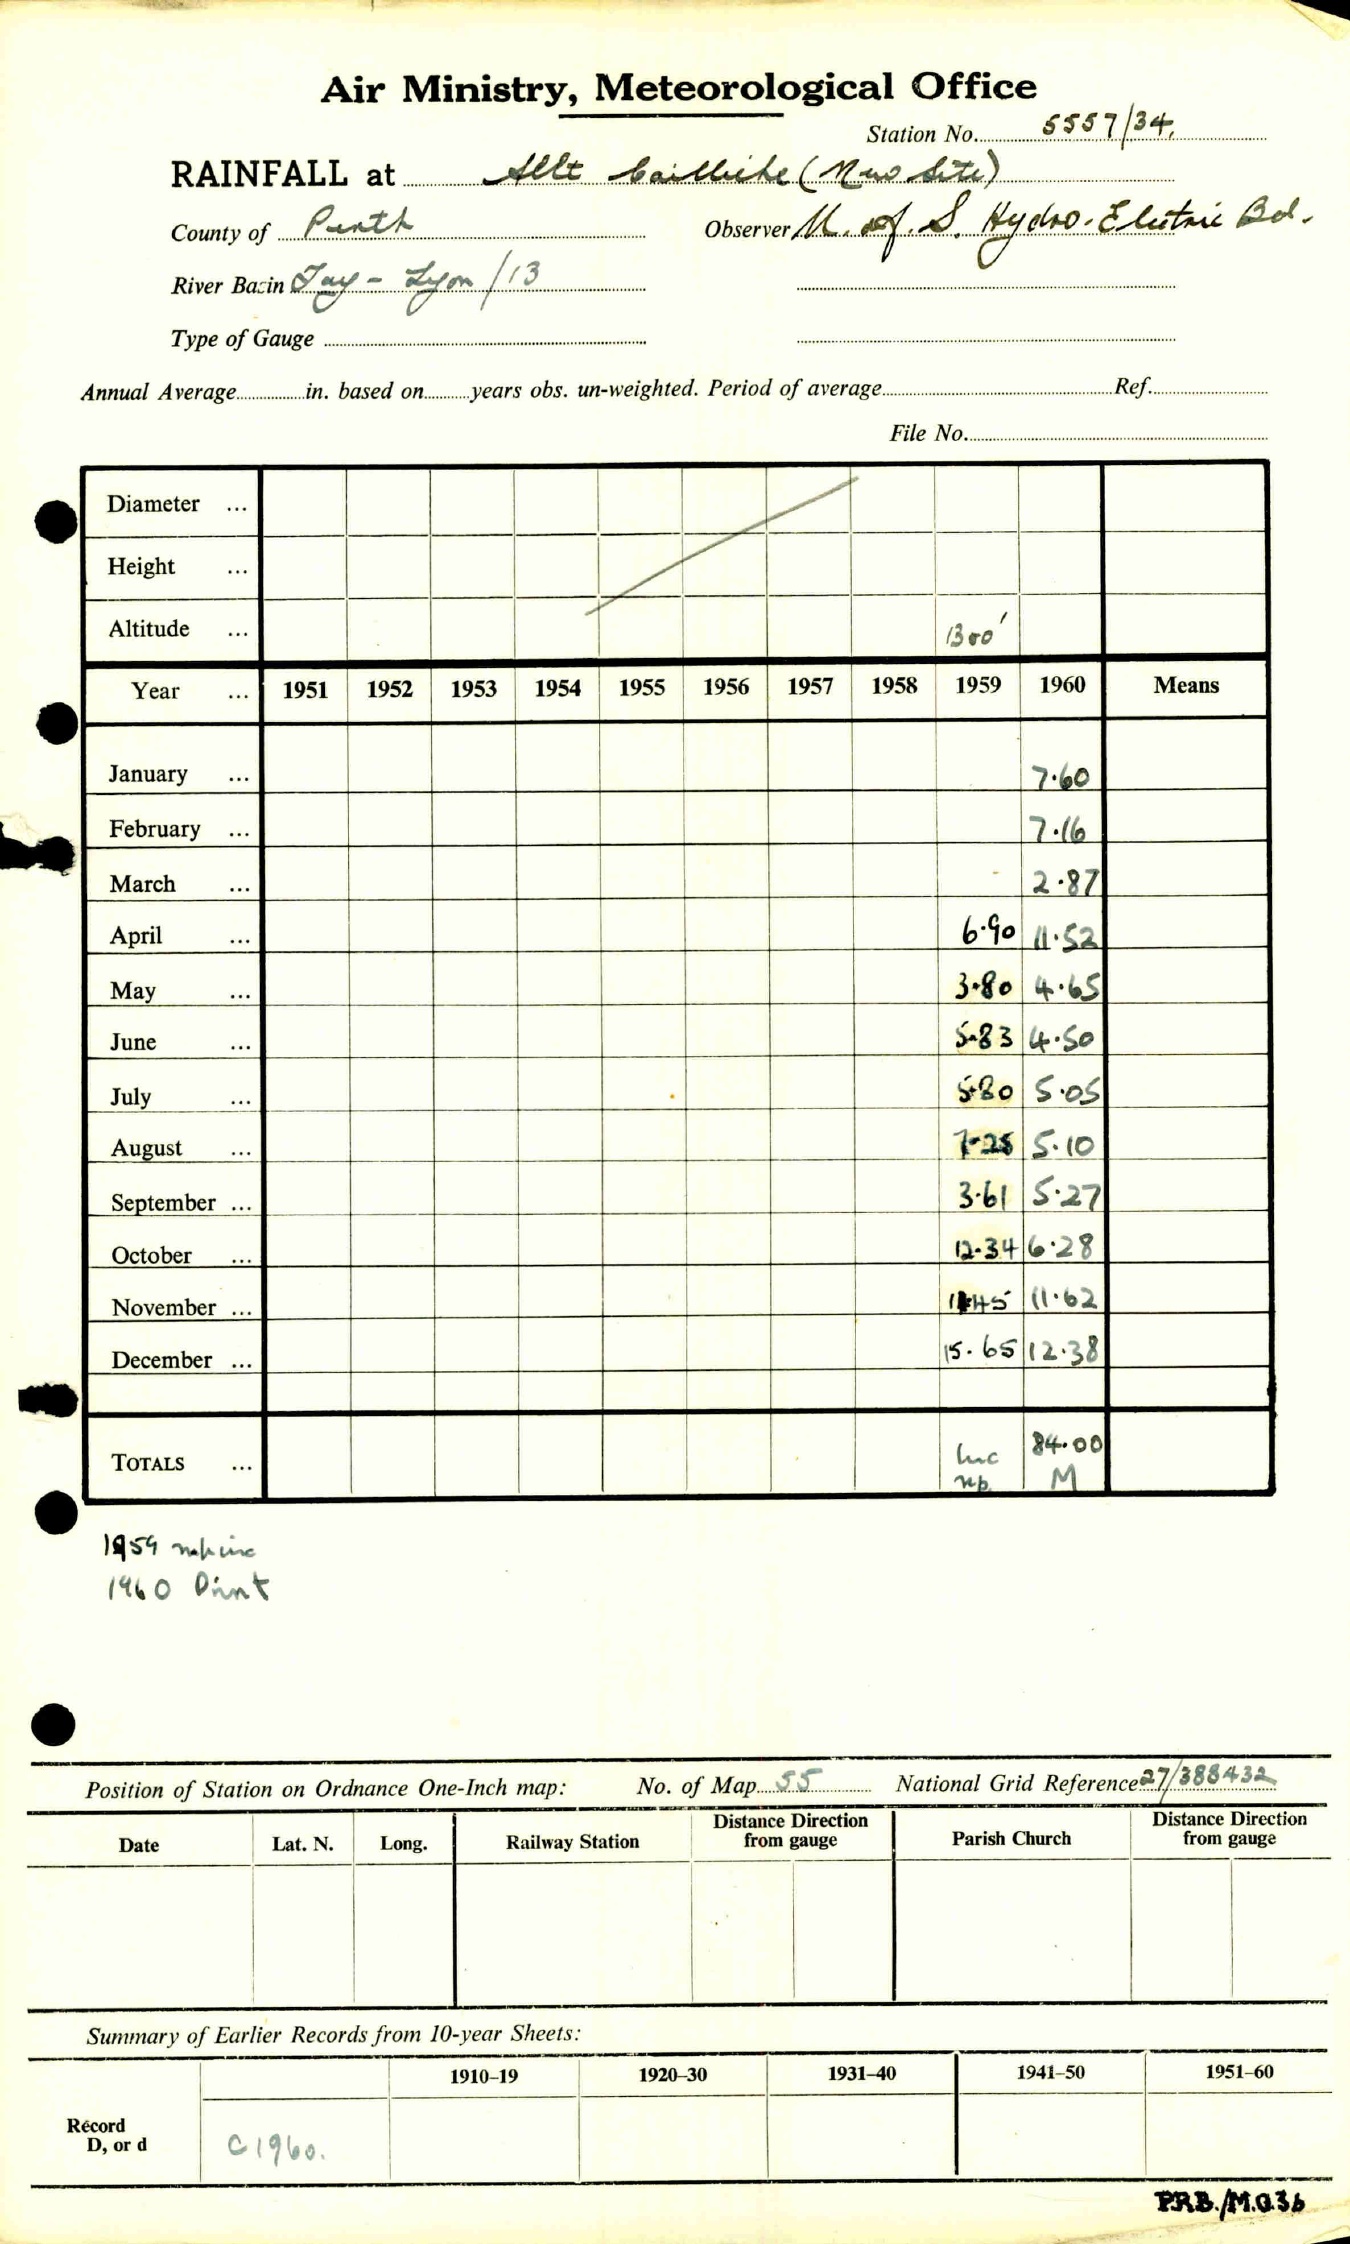 Air Ministry, Meteorological Office
Station No. 5557/34.
RAINFALL at Allt Cailliche (New Site)
County of Perth Observer N. of S. Hydro-Electric Bd.
River Basin Tay - Lyon /13
Type of Gauge
Annual Average in. based on years obs. un-weighted. Period of average Ref.
File No.
Diameter ...
Height ...
Altitude ... 1300'
Year ... 1951 1952 1953 1954 1955 1956 1957 1958 1959 1960 Means
January ... 7.60
February ... 7.16
March ... 2.87
April ... 6.90 11.52
May ... 3.80 4.65
June ... 5.83 4.50
July ... 5.80 5.05
August ... 7.25 5.10
September ... 3.61 5.27
October ... 12.34 6.28
November ... 11.62
December ... 15.65 12.38
TOTALS ... inc 84.00
M
1959
1960 Print
Position of Station on Ordnance One-Inch map: No. of Map 55 National Grid Reference 27/388432
Date Lat. N. Long. Railway Station Distance Direction from gauge Parish Church Distance Direction from gauge
Summary of Earlier Records from 10-year Sheets:
1910–19 1920–30 1931–40 1941–50 1951–60
Record
D, or d C1960.
P.R.B./M.O.36